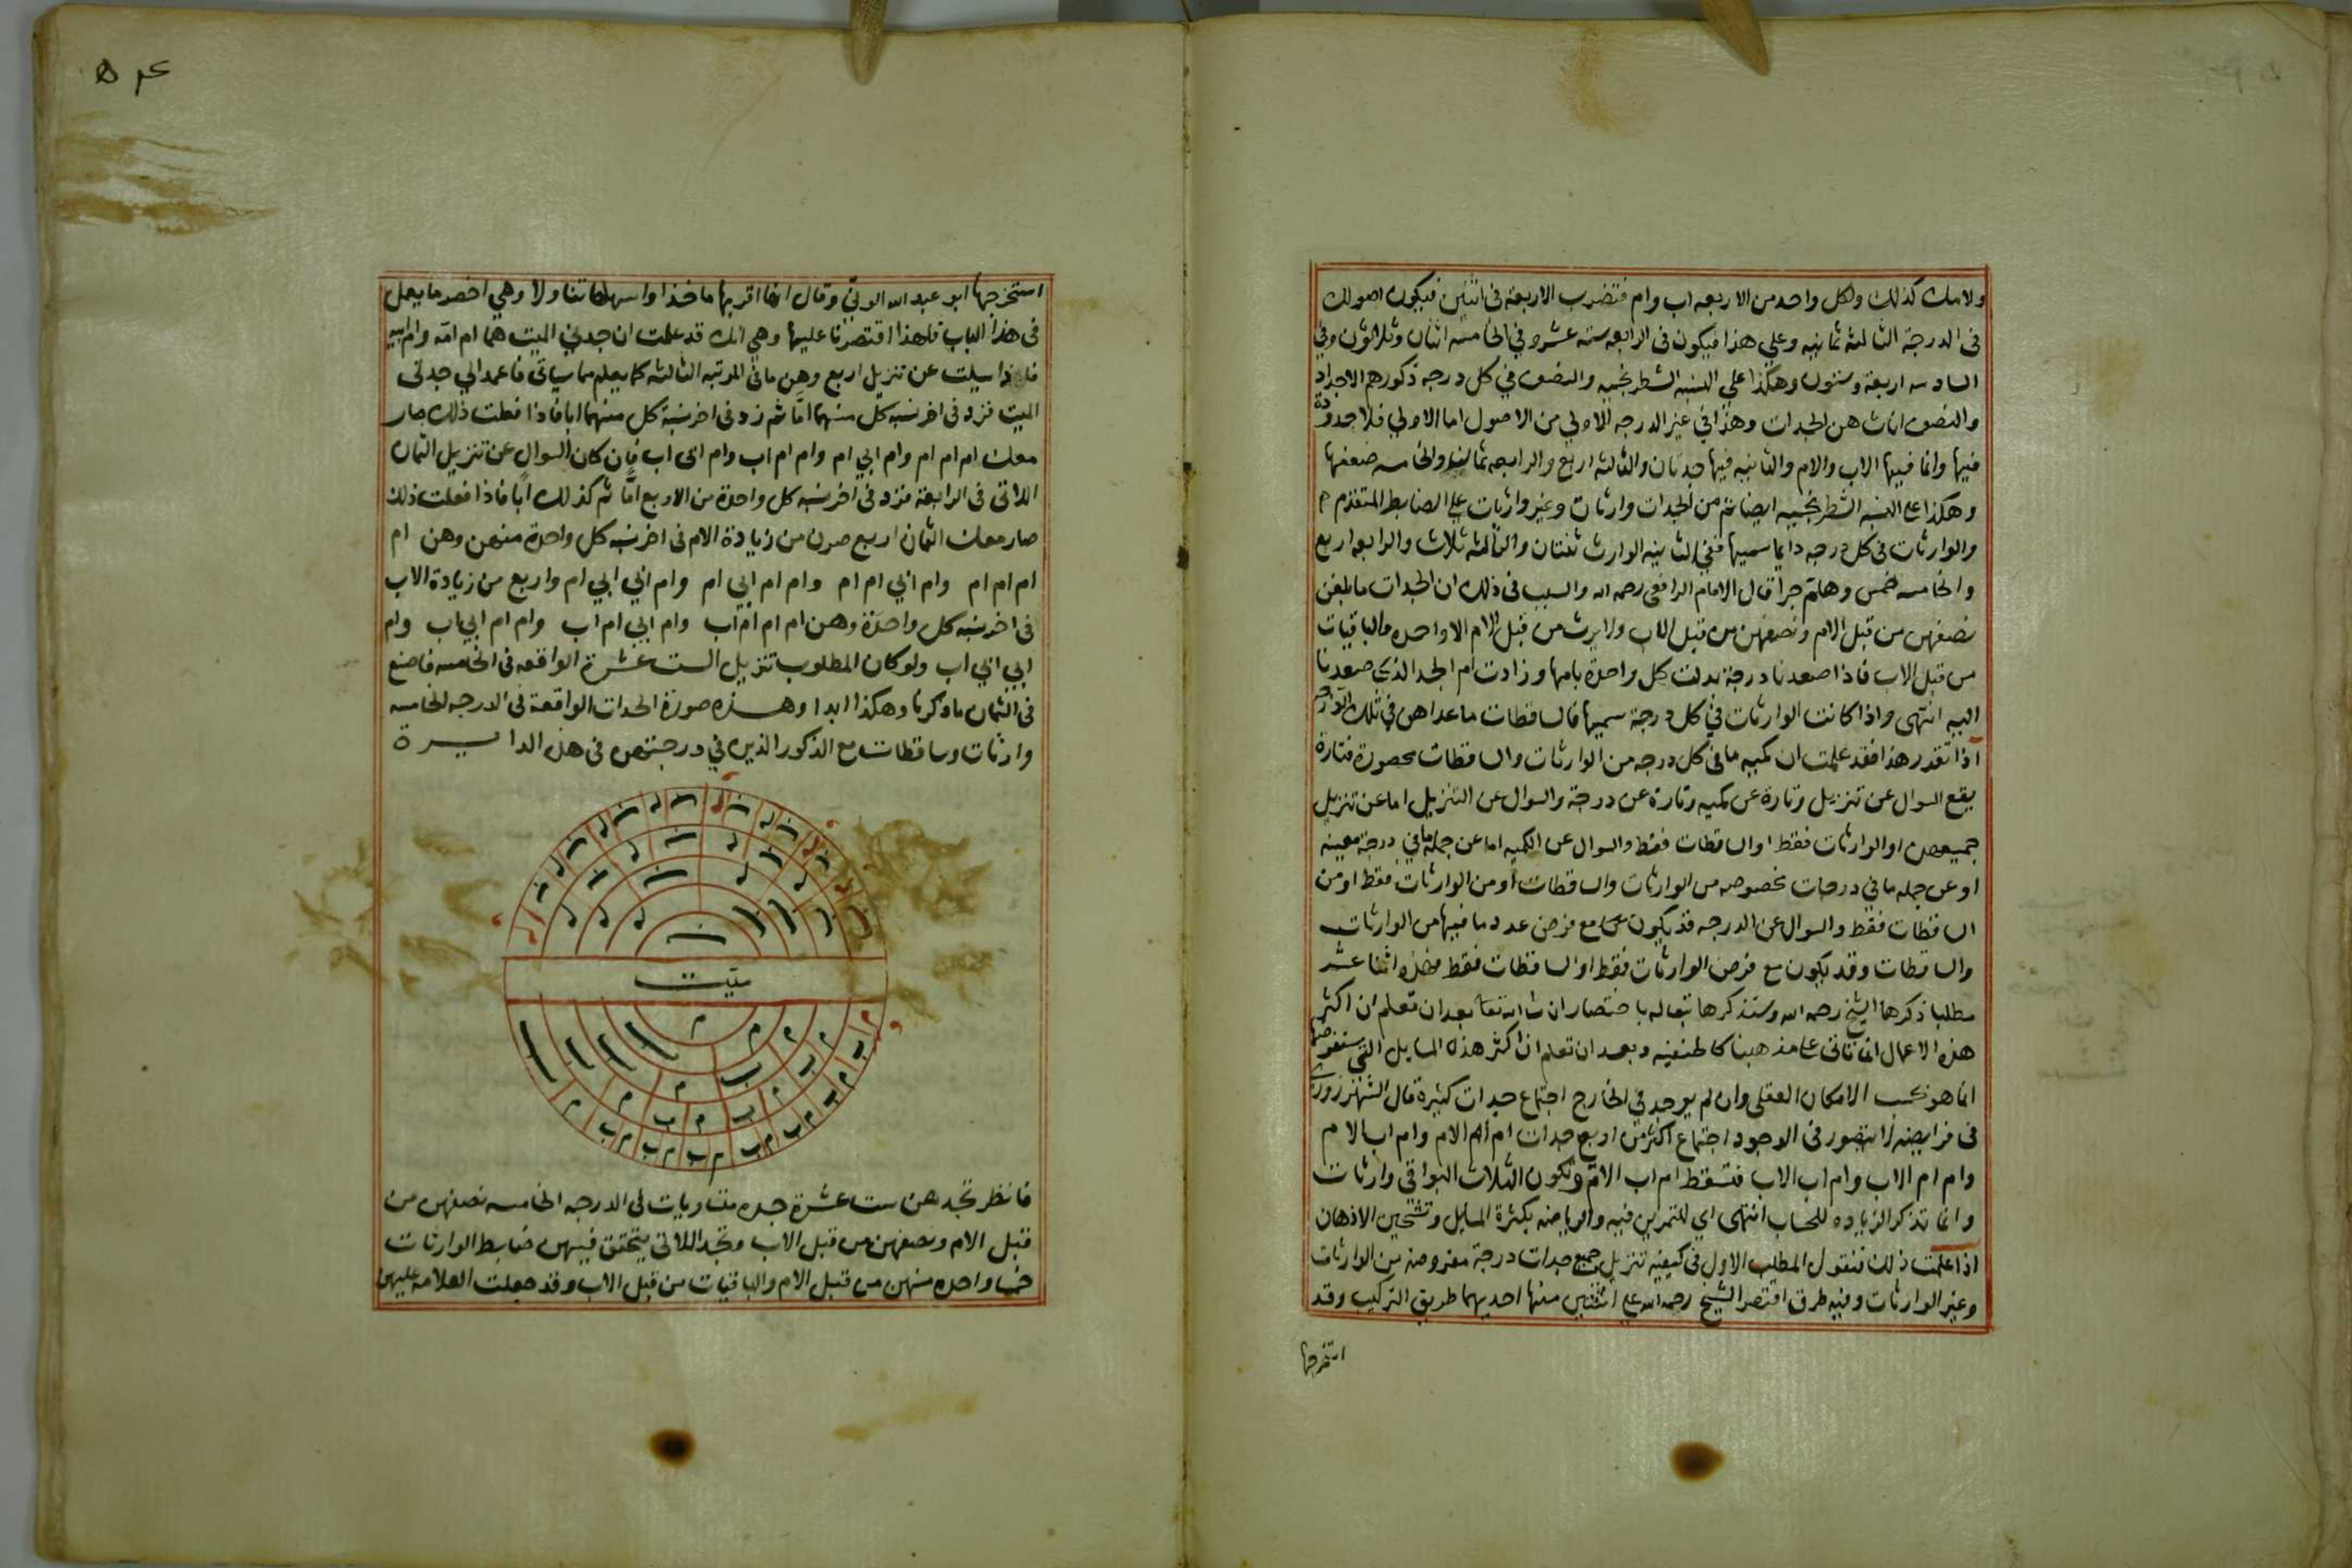 ولامك كذلك ولكل واحد من الاربعه اب وام فتضرب الاربعة فى اثنين فيكون اصولك
فى الدرجة الثالثه ثمانيه وعلي هذا فيكون فى الرابعه سته عشر وفي الخامسه اثنان وثلاثون وفي
السادسه اربعة وستون وهكذا علي النسبه الشطرنجيه والنصف في كل درجه ذكورهم الاجداد
والنصف اناث هن الجدات وهذا في غير الدرجه الاولي من الاصول اما الاولي فلا جدودة
فيها وانما فيها الاب والام والثانيه فيها جدتان والثالثه اربع والرابعه ثمانيه والخامسه ضعفها
وهكذا على النسبه الشطرنجيه ايضا ثم من الجدات وارثات وغير وارثات علي الضابط المتقدم
والوارثات فى كل درجه دايما سميها ففي الثانيه الوارث ثنتان والثالثه ثلاث والرابعه اربع
والخامسه خمس وهلم جرا قال الامام الرافعى رحمه الله والسبب فى ذلك ان الجدات ما بلغن
نصفهن من قبل الام ونصفهن من قبل الاب ولا يرث من قبل الام الا واحده والباقيات
من قبل الاب فاذا صعدنا درجة بدلت كل واحدة بامها وزادت ام الجد الذي صعدنا
اليه انتهى واذا كانت الوارثات في كل درجة سميها فالساقطات ما عداهن في تلك الدرجة
اذا تقدر هذا فقد علمت ان كميه ما فى كل درجه من الوارثات والساقطات محصورة فتارة
يقع السوال عن تنزيل وتارة عن كميه وتارة عن درجة والسوال عن التنزيل اما عن تنزيل
جميعهن او الوارثات فقط او الساقطات فقط والسوال عن الكميه اما عن جملة ما في درجة معينه
او عن جمله ما في درجات مخصوصه من الوارثات والساقطات او من الوارثات فقط او من
الساقطات فقط والسوال عن الدرجه قد يكون مع فرض عدد ما فيها من الوارثات
والساقطات وقد يكون مع فرض الوارثات فقط او الساقطات فقط فهذه اثنا عشر
مطلبا ذكرها الشيخ رحمه الله وسنذكرها تبعا له باختصار ان شا الله تعا بعد ان تعلم ان اكثر
هذه الاعمال انما تاتى على مذهبنا كالحنفيه وبعد ان تعلم ان اكثر هذه المسايل التي سنفرضها
انما هو بحسب الامكان العقلى وان لم يوجد في الخارج اجتماع جدات كثيرة قال الشهرزوري
فى فرايضه لا يتصور فى الوجود اجتماع اكثر من اربع جدات ام ام الام وام اب الام
وام ام الاب وام اب الاب فتسقط ام اب الام وتكون الثلاث البواقى وارثات
وانما تذكر الزياده للحساب انتهى اي للتمرين فيه والرياضه بكثرة المسايل وتشحين الاذهان
اذا علمت ذلك فنقول المطلب الاول فى كيفيه تنزيل جميع جدات درجة مفروضة من الوارثات
وغير الوارثات وفيه طرق اقتصر الشيخ رحمه الله على اثنتين منها احديهما طريق التركيب وقد
استخرجها
۵۴
استخرجها ابو عبد الله الونى وقال انها اقربها ماخذا واسهلها تناولا وهي اخصر ما يعمل
فى هذا الباب فلهذا اقتصرنا عليها وهي انك قد علمت ان جدتي الميت هما ام امه وام ابيه
فاذا سيلت عن تنزيل اربع وهن ما فى المرتبه الثالثه كما يعلم مما سياتى فاعمد الي جدتى
الميت فزد فى اخر نسبه كل منهما اما ثم زد فى اخر نسبة كل منهما ابا فاذا فعلت ذلك صار
معك ام ام ام وام ابي ام وام ام اب وام ابى اب فان كان السوال عن تنزيل الثمان
اللاتى فى الرابعة فزد فى اخر نسبه كل واحدة من الاربع اما ثم كذلك ابا فاذا فعلت ذلك
صار معك الثمان اربع صرن من زيادة الام فى اخر نسبه كل واحدة منهن وهن ام
ام ام ام وام ابي ام ام وام ام ابي ام وام ابي ابي ام واربع من زيادة الاب
فى اخر نسبه كل واحدة وهن ام ام ام اب وام ابي ام اب وام ام ابي اب وام
ابي ابي اب ولو كان المطلوب تنزيل الست عشرة الواقعه فى الخامسه فاصنع
فى الثمان ما ذكرنا وهكذا ابدا وهذه صورة الجدات الواقعة فى الدرجه الخامسه
وارثات وساقطات مع الذكور الذين في درجتهن فى هذه الدايرة
ميت
فانظر تجدهن ست عشرة جده متساويات في الدرجه الخامسه نصفهن من
قبل الام ونصفهن من قبل الاب وتجد اللاتى يتحقق فيهن ضابط الوارثات
خمسا واحده منهن من قبل الام والباقيات من قبل الاب وقد جعلت العلامه عليهن